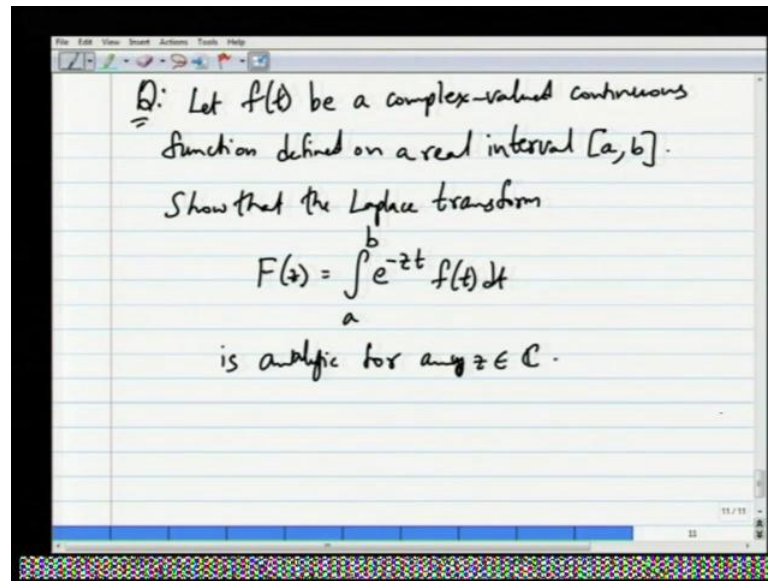 File Edit View Insert Actions Tools Help
Q: Let f(t) be a complex-valued continuous
function defined on a real interval [a, b].
Show that the Laplace transform
b
F(z) = ∫ e^{-zt} f(t) dt
a
is analytic for any z ∈ ℂ.
11/11
11